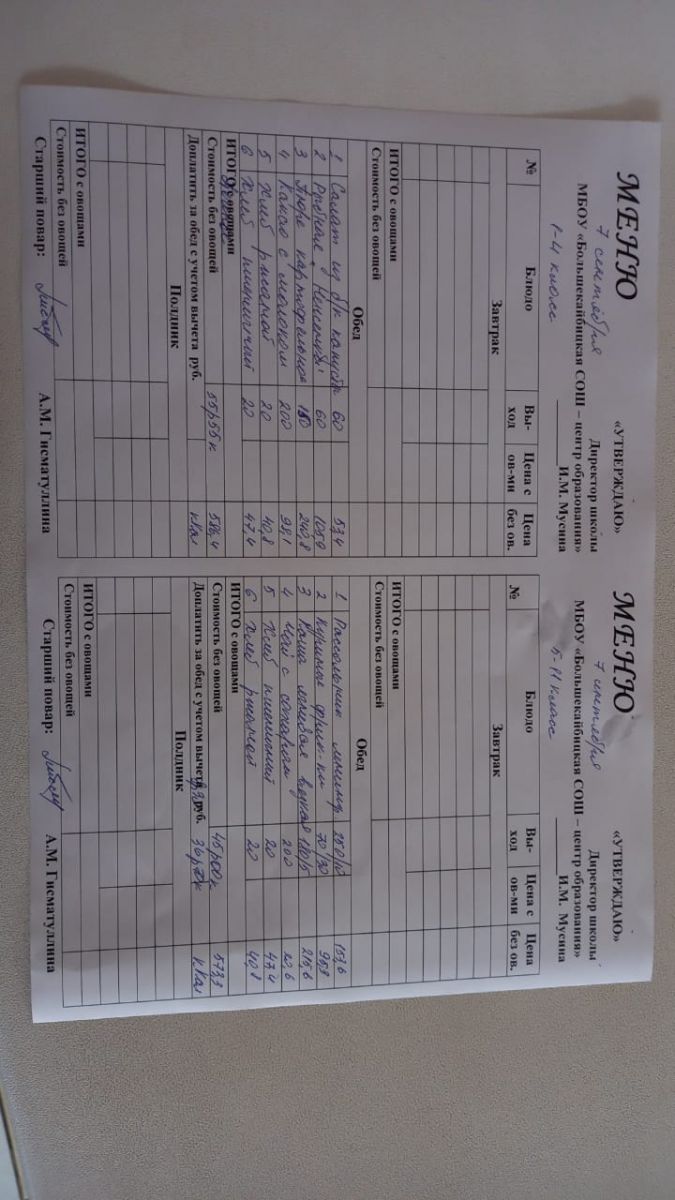 «УТВЕРЖДАЮ»
Директор школы
МЕНЮ _______И.М. Мусина
7 сентября МБОУ «Большекайбицкая СОШ – центр образования»
1-4 класс
№ Блюдо Вы-ход Цена с ов-ми Цена без ов.
Завтрак
ИТОГО с овощами
Стоимость без овощей
Обед
1 Салат из б/к капусты 60 53,4
2 60 105,9
3 Пюре картофельное 150 240,8
4 Какао с молоком 200 98,1
5 Хлеб ржаной 20 40,8
6 Хлеб пшеничный 20 47,4
ИТОГО с овощами
Стоимость без овощей 55р55к 586,4
Доплатить за обед с учетом вычета руб. ккал
Полдник
ИТОГО с овощами
Стоимость без овощей
Старший повар: А.М. Гисматуллина
«УТВЕРЖДАЮ»
Директор школы
МЕНЮ _______И.М. Мусина
7 сентября МБОУ «Большекайбицкая СОШ – центр образования»
5-11 класс
№ Блюдо Вы-ход Цена с ов-ми Цена без ов.
Завтрак
ИТОГО с овощами
Стоимость без овощей
Обед
1 Рассольник 250/10 153,6
2 Куриные фрик-ки 70/30 95,8
3 Каша 180/5 215,6
4 Чай с сахаром 200 20,6
5 Хлеб пшеничный 20 47,4
6 Хлеб ржаной 20 40,8
ИТОГО с овощами
Стоимость без овощей 45р00к 573,3
Доплатить за обед с учетом вычета руб. ккал
Полдник
ИТОГО с овощами
Стоимость без овощей
Старший повар: А.М. Гисматуллина